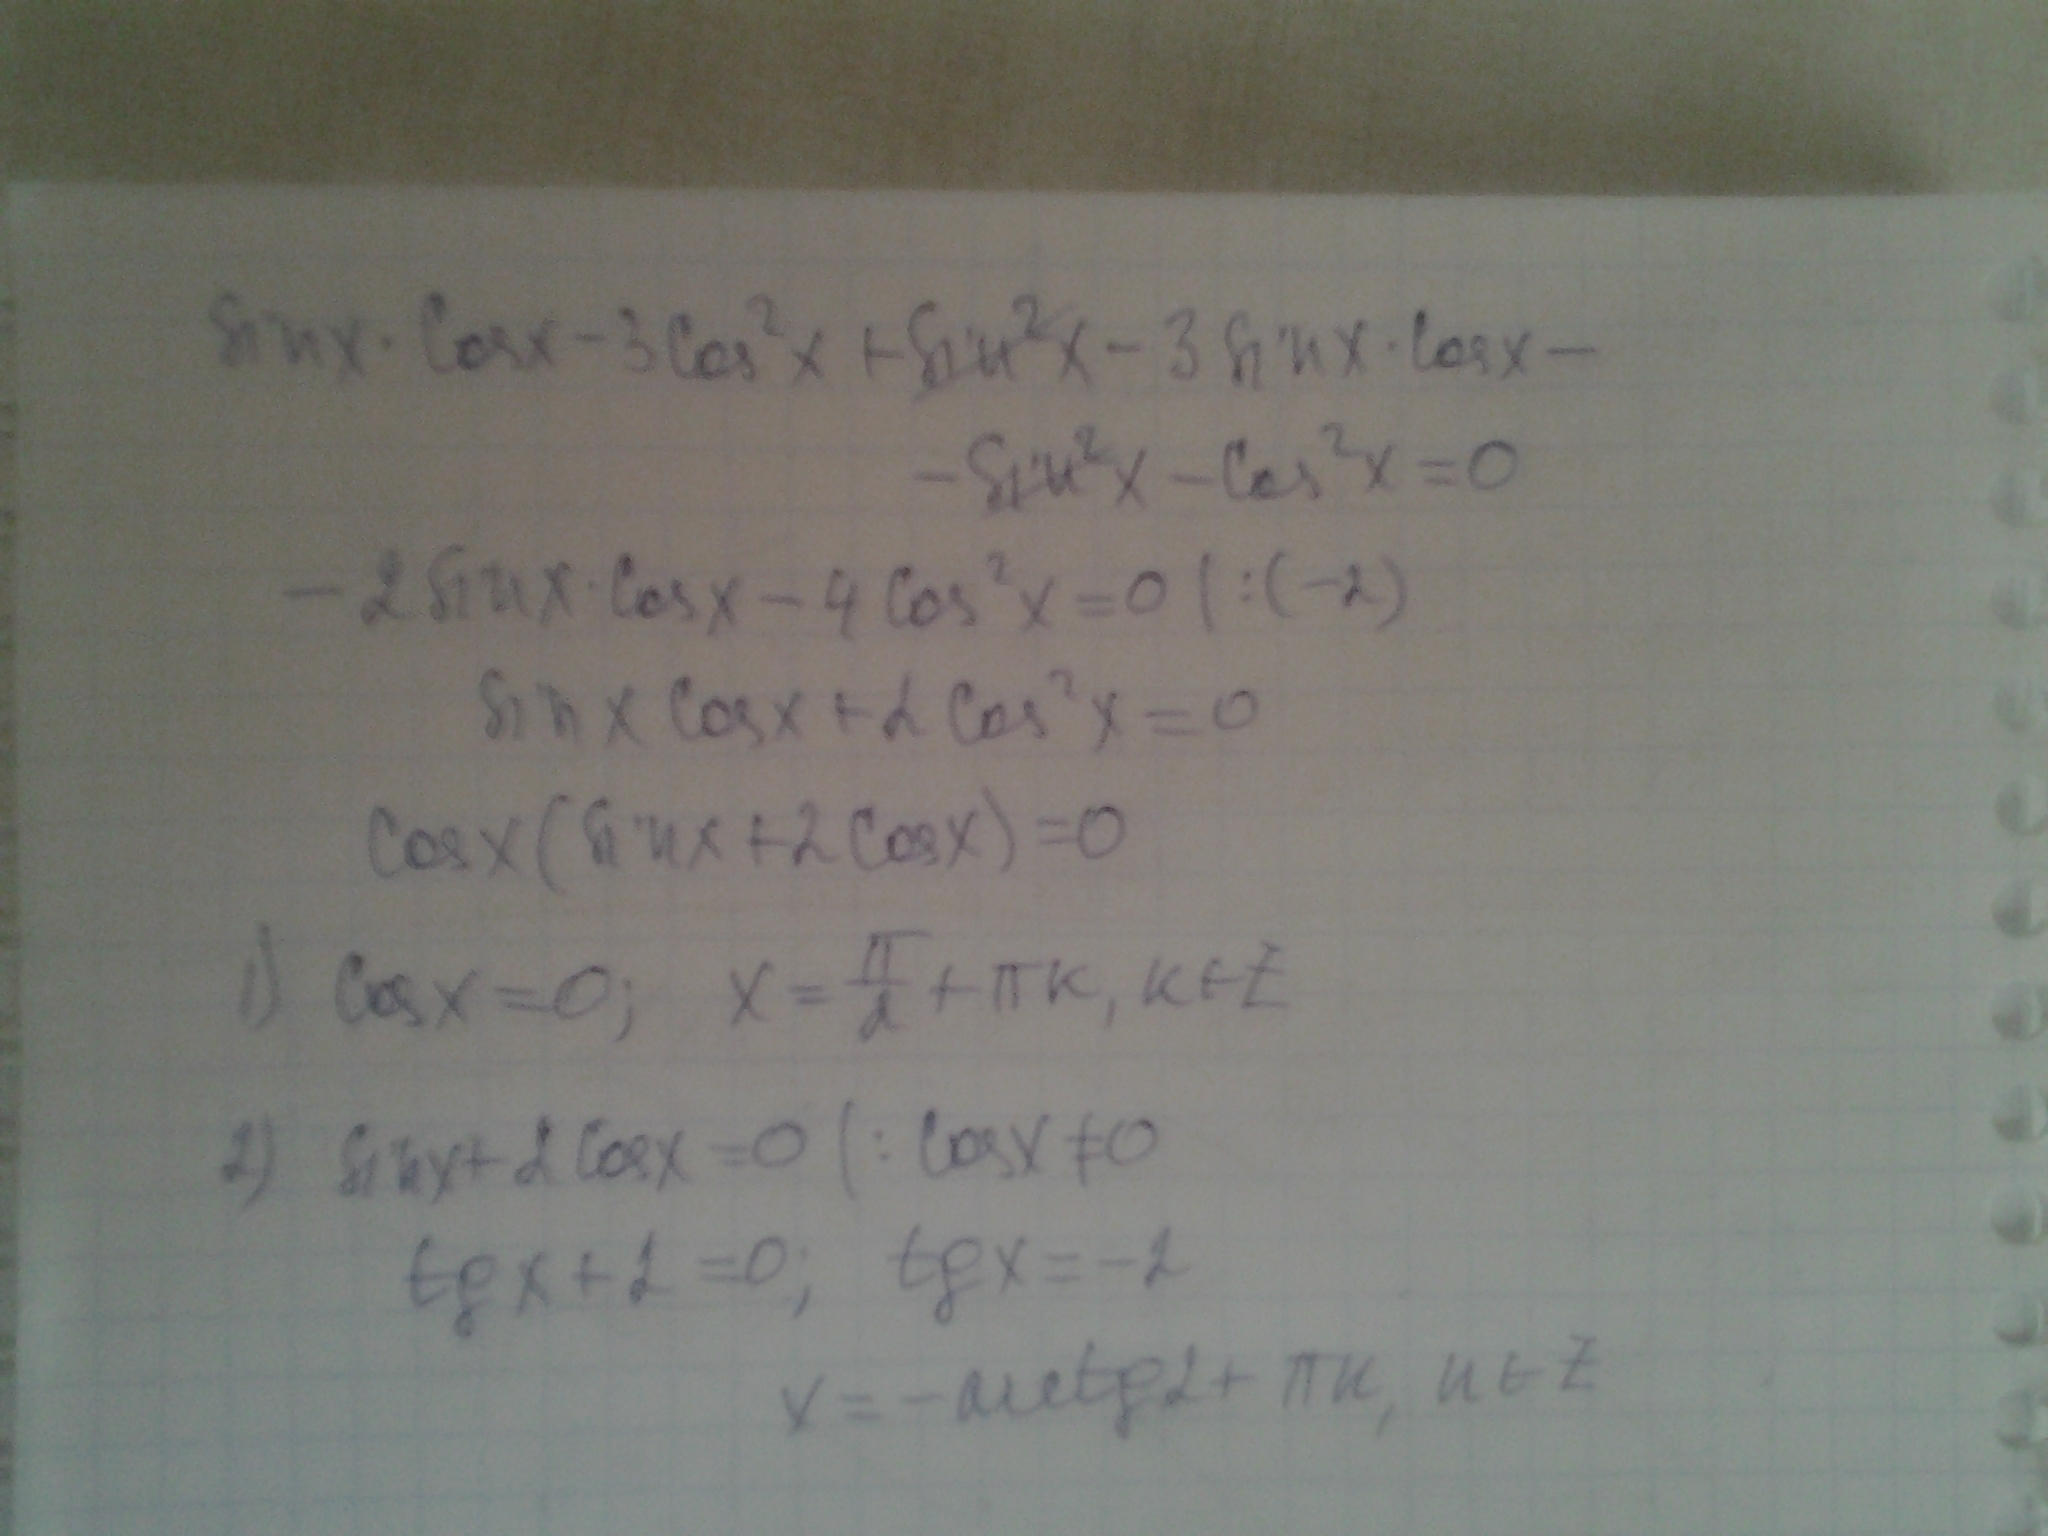 sinx·cosx-3cos²x+sin²x-3sinx·cosx-
-sin²x-cos²x=0
-2sinx·cosx-4cos²x=0 |:(-2)
sinx cosx+2cos²x=0
cosx(sinx+2cosx)=0
1) cosx=0; x=π/2+πk, k∈Z
2) sinx+2cosx=0 |: cosx≠0
tgx+2=0; tgx=-2
x=-arctg2+πk, k∈Z